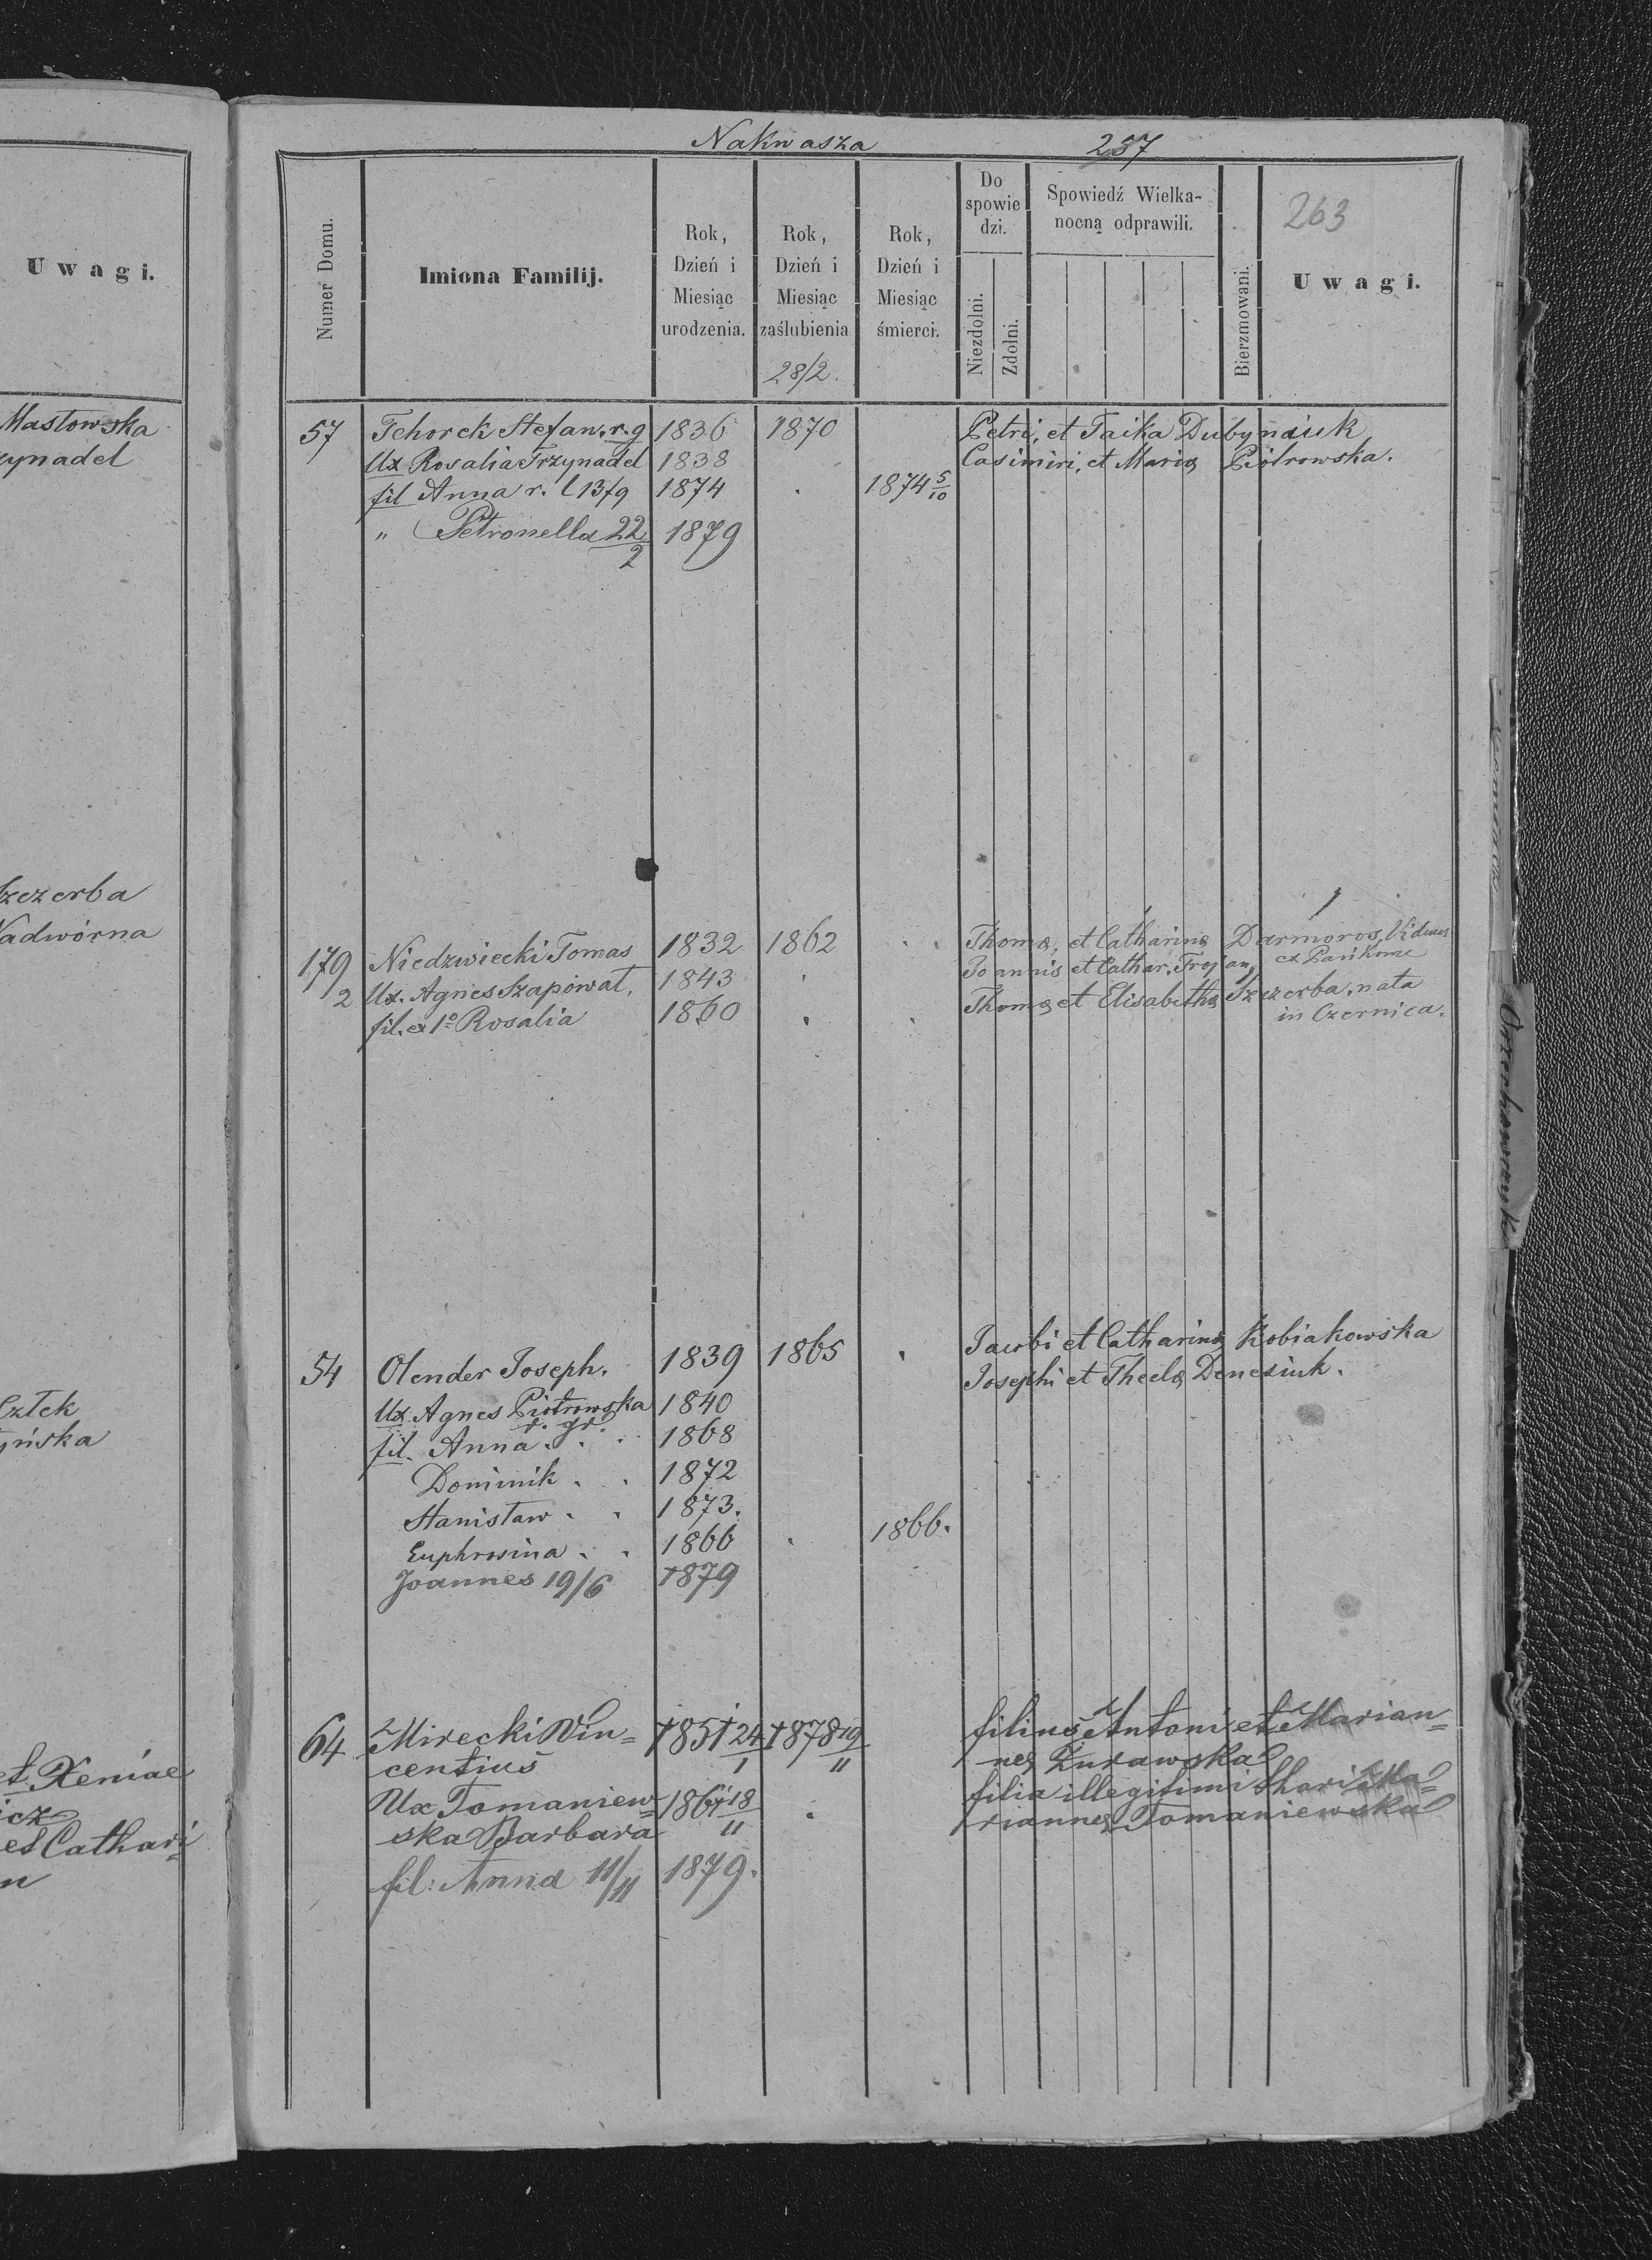 Nakwasza 257
263
Uwagi.
Numer Domu.
Imiona Familij.
Rok, Dzień i Miesiąc urodzenia.
Rok, Dzień i Miesiąc zaślubienia
28/2.
Rok, Dzień i Miesiąc śmierci.
Do spowie dzi.
Niezdolni.
Zdolni.
Spowiedź Wielka-
nocną odprawili.
Bierzmowani.
Uwagi.
Mastowska
zynadel
57 Tehorek Stefan. r. g 1836 1870 Petri, et Taika Dubynaiuk
Ux Rosalia Trzynadel 1838 Casimiri, et Maria Piotrowska.
fil Anna r. l 13/9 1874 1874 5/10
" Petronella 22/2 1879
Szczerba
Nadwórna
179 Niedzwiecki Tomas 1832 1862 Thoma, et Catharina Darmoros, Viduus
ex Pańkowce
2 Ux. Agnes Szapowat, 1843 Joannis et Cathar. Trojan,
fil. ex 1o Rosalia 1860 Thoma et Elisabetha Szczerba, nata
in Czernica.
54 Olender Joseph. 1839 1865 Jacobi et Catharina Kobiakowska
Ux. Agnes Piotrowska 1840 Josephi et Thecla Denesiuk.
r. gr.
fil. Anna . . 1868
Dominik . . 1872
Stanisław . . 1873.
Euphrosina . . 1866 1866.
Joannes 19/6 1879
64 Mirecki Vin= 1851 24/1 1878 19/11 filius Antoni et Marian=
centius na Żurawska
Ux Tomaniew= 18 18/11 filia illegitimi thori Ma=
ska Barbara rianna Tomaniewska
fil: Anna 11/11 1879.
Człek
yńska
et Xeniae
icz
et Cathari
n
Orzechowczyk